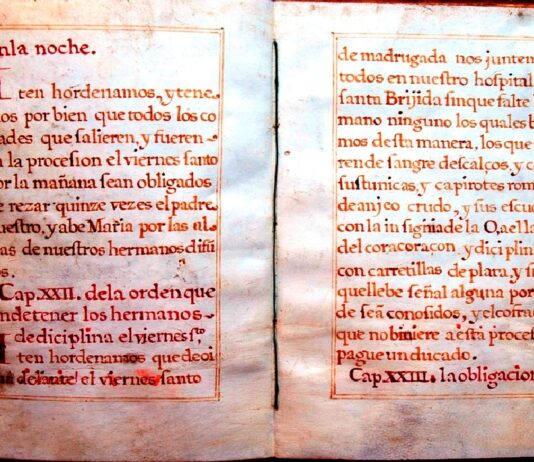 nla noche.
I ten hordenamos, y tene
os por bien que todos los co
ades que salieren, y fueren-
la procesion el viernes santo
or la mañana sean obligados
e rezar quinze vezes el padre
uestro, y abe Maria por las al
as de nuestros hermanos difũ
os.
Cap. XXII. dela orden que
ndetener los hermanos-
dediciplina el viernes sto
I ten hordenamos que deci
delante el viernes santo
de madrugada nos junten
todos en nuestro hospital
santa Brijida sin que falte
mano ninguno los quales b
mos desta manera, los que
ren de sangre descalços, y c
sus tunicas, y capirotes rom
de anjeo crudo, y sus escu
con la in signia de la O, a ella
del coracoraçon y diciplin
con carretillas de plara, y s
que llebe señal alguna por
de seã conosidos, y el cofra
que no biniere a esta proces
pague un ducado.
Cap. XXIII. la obligacion